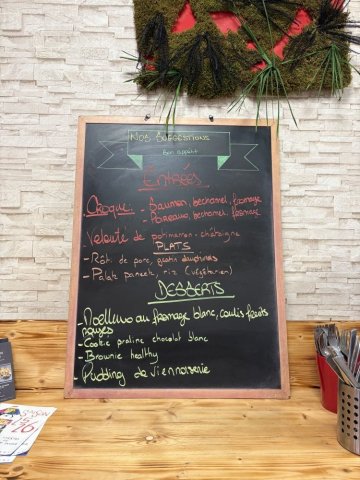 NOS SUGGESTIONS
Bon appétit
ENTRÉES
Croque: - Saumon, bechamel, fromage
- Poireaux, bechamel, fromage
Velouté de potimarron-châtaigne
PLATS
- Rôti de porc, gratin dauphinois
- Palak paneer, riz (végétarien)
DESSERTS
- Moelleux au fromage blanc, coulis fruits
rouges
- Cookie praliné chocolat blanc
- Brownie healthy
- Pudding de viennoiserie